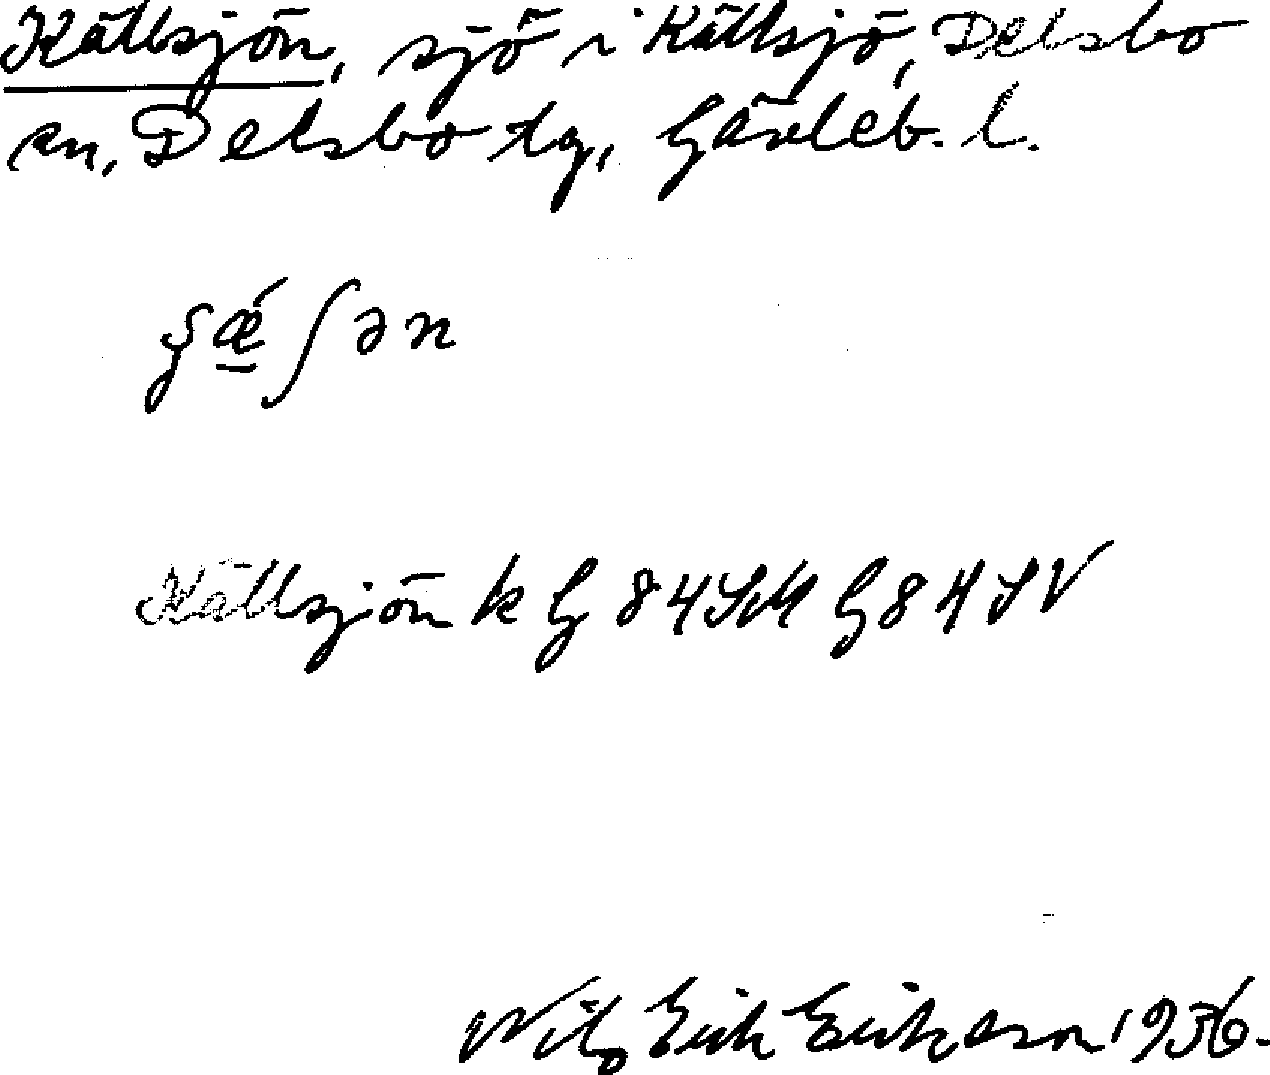 Källsjön, sjö i Källsjö, Delsbo
sn, Delsbo tg, Gävleb. l.
Källsjön k G 84 SM G 84 SV
Nils Erik Erikson 1936.